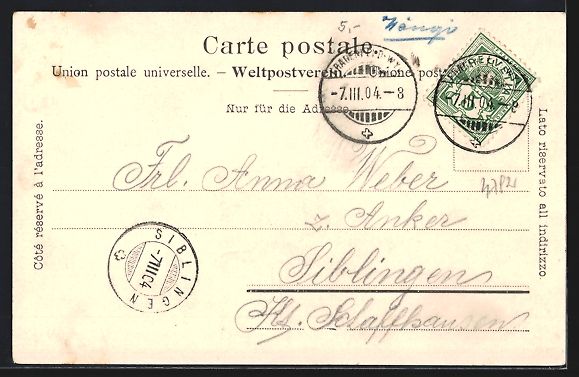 5.- Wängi
Carte postale.
Union postale universelle. – Weltpostverein. – Unione post
Nur für die Adresse.
FRAUENFELD-WYL
-7.III.04.-8
-7.III.04.-8
Côté réservé à l'adresse.
Lato riservato all indirizzo.
Frl. Anna Weber
z. Anker
Siblingen
Kt. Schaffhausen
SIBLINGEN
-7.III.04